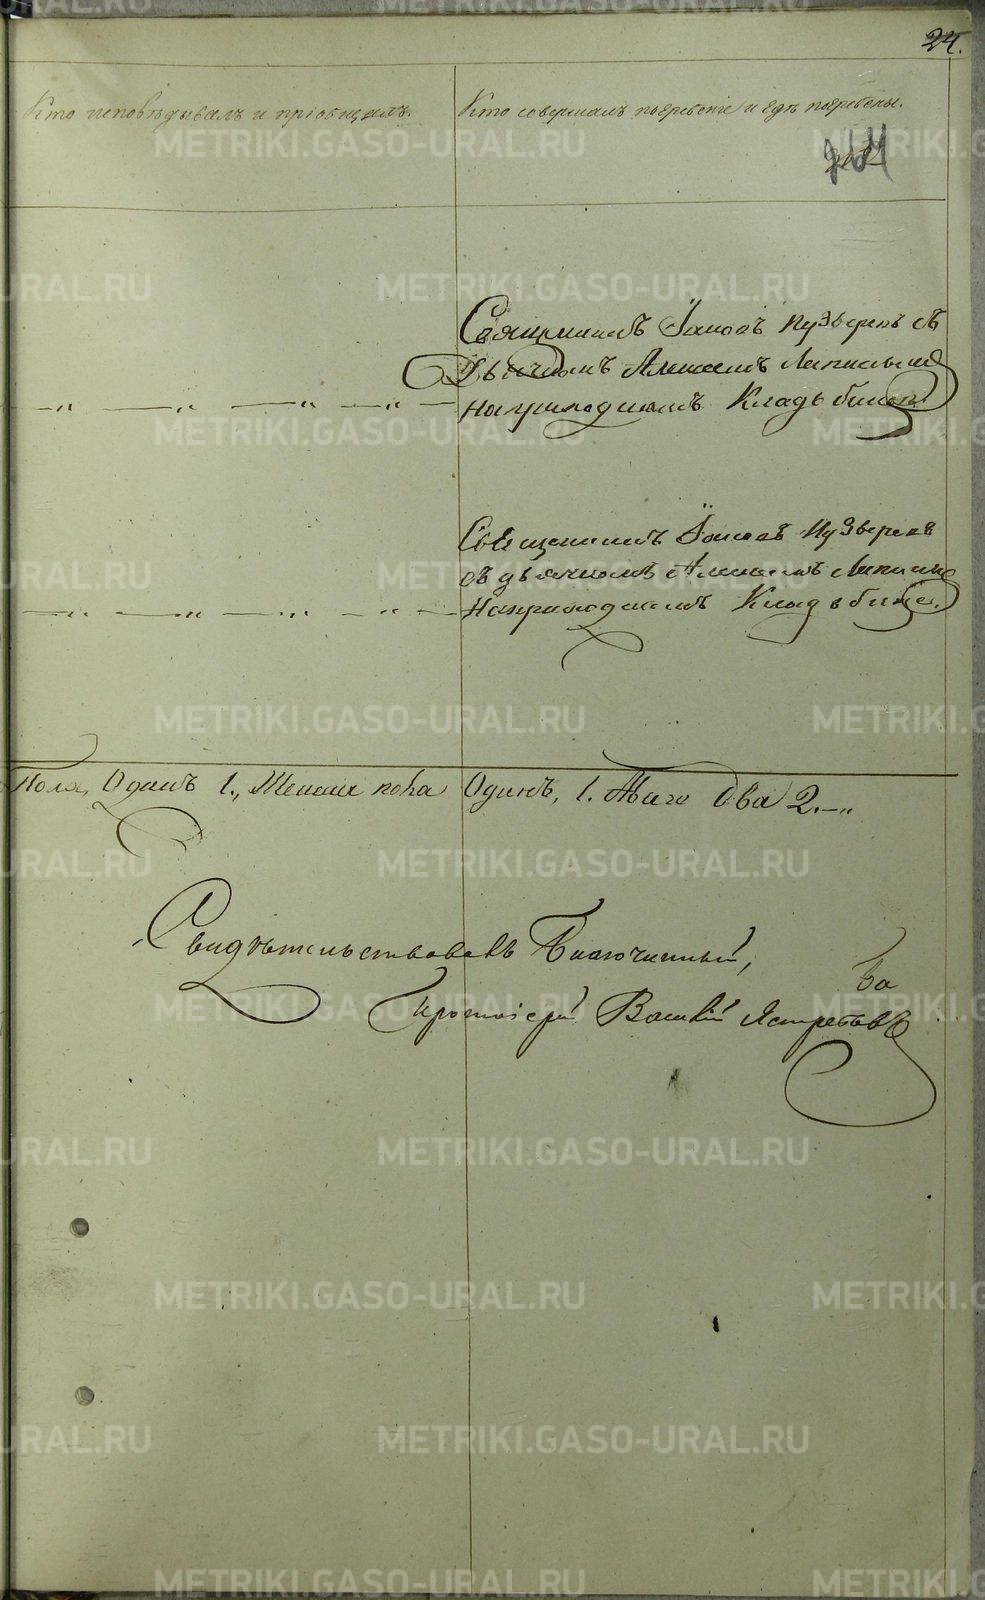 24.
Кто исповѣдывалъ и пріобщалъ.
Кто совершалъ погребеніе и гдѣ погребены.
Священникъ Іаковъ Пузыревъ съ
Дьячкомъ Алексѣемъ
на приходскомъ Кладбищѣ.
Священникъ Іаковъ Пузыревъ
съ дьячкомъ Алексѣемъ
На приходскомъ Кладбищѣ.
Пола, Одинъ 1., Женска пола Одинъ, 1. Того Два 2.
Свидѣтельствовалъ Благочинный,
Протоіерей Василій Ястребовъ
METRIKI.GASO-URAL.RU